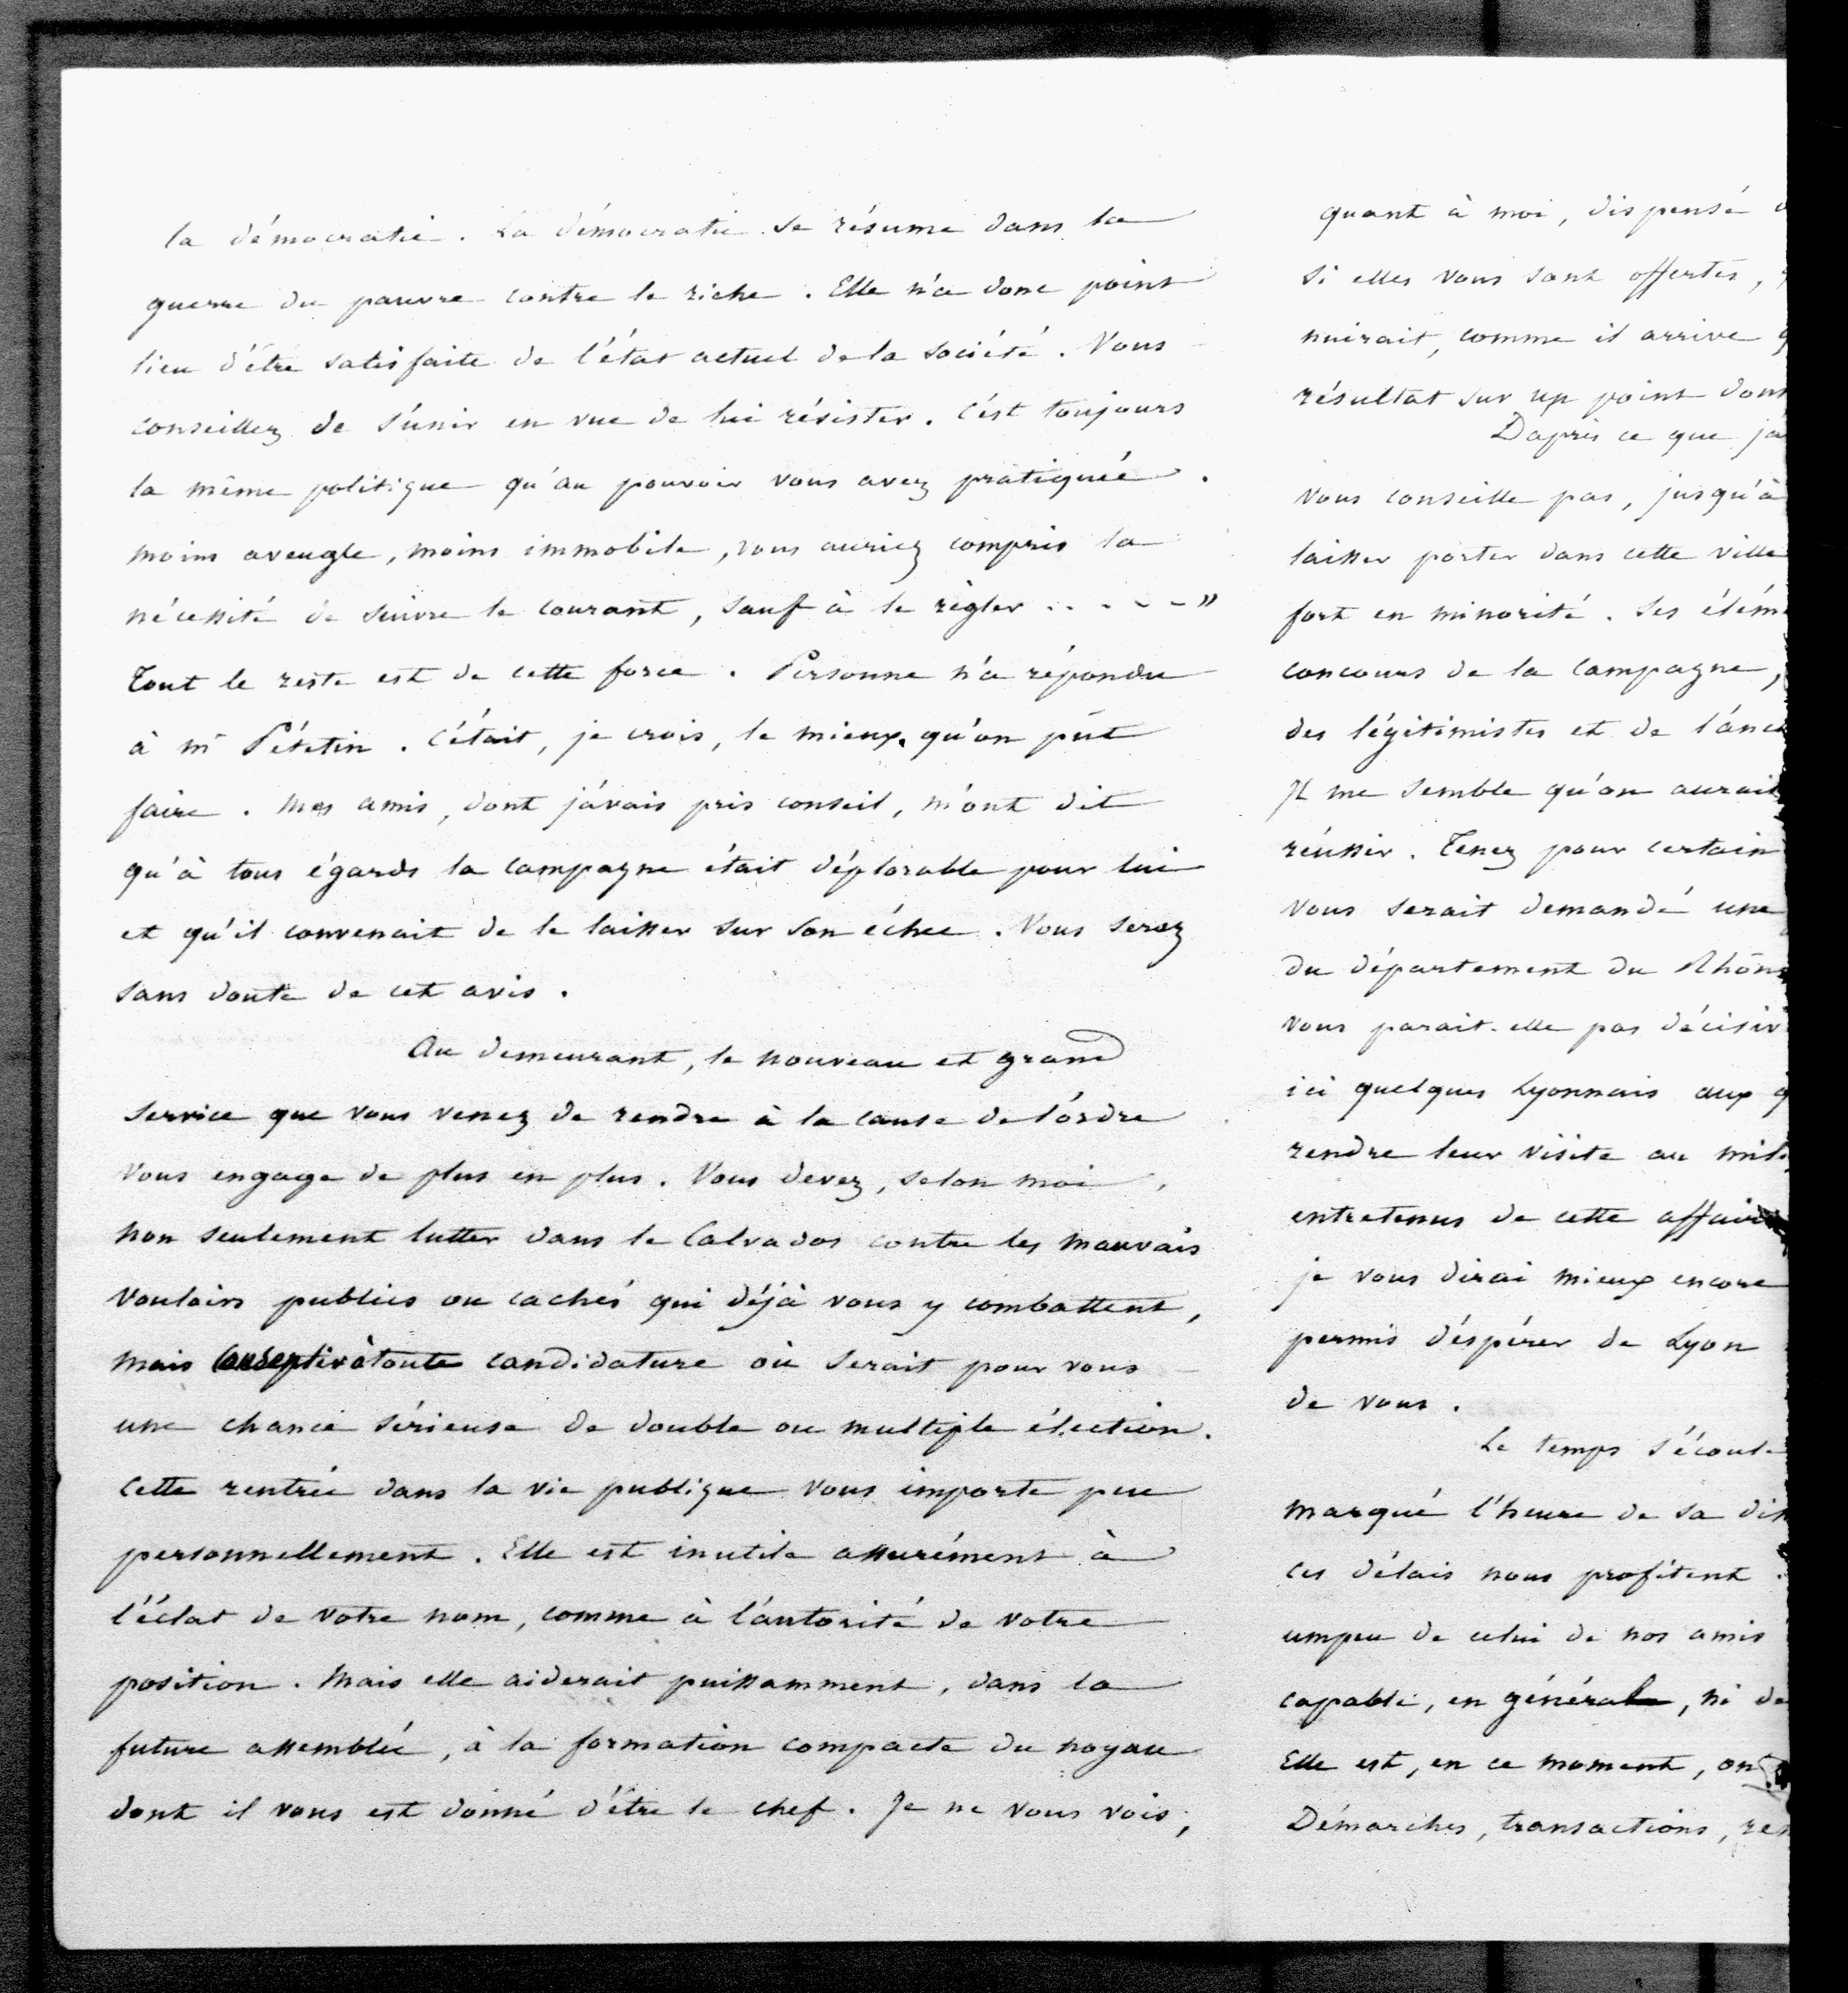 la démocratie. La démocratie se résume dans la
guerre du pauvre contre le riche. Elle n'a donc point
lieu d'être satisfaite de l'état actuel de la société. Vous
conseillez de s'unir en vue de lui résister. C'est toujours
la même politique qu'au pouvoir vous avez pratiquée.
moins aveugle, moins immobile, vous auriez compris la
nécessité de suivre le courant, sauf à le règler . . . . . »
Tout le reste est de cette force. Personne n'a répondu
à Mr Pététin. C'était, je crois, le mieux qu'on pût
faire. Mes amis, dont j'avais pris conseil, m'ont dit
qu'à tous égards la campagne était déplorable pour lui
et qu'il convenait de le laisser sur son échec. Vous serez
sans doute de cet avis.
Au demeurant, le nouveau et grand
service que vous venez de rendre à la cause de l'ordre
vous engage de plus en plus. Vous devez, selon moi,
non seulement lutter dans le Calvados contre les mauvais
vouloirs publics ou cachés qui déjà vous y combattent,
mais toute candidature où serait pour vous
une chance sérieuse de double ou multiple élection.
Cette rentrée dans la vie publique vous importe peu
personnellement. Elle est inutile assurément à
l'éclat de votre nom, comme à l'autorité de votre
position. Mais elle aiderait puissamment, dans la
future assemblée, à la formation compacte du noyau
dont il vous est donné d'être le chef. Je ne vous vois,
quant à moi, dispensé
si elles vous sont offertes,
nuirait, comme il arrive
résultat sur un point dont
D'après ce que
vous conseille pas, jusqu'à
laisser porter dans cette ville
fort en minorité. Ses
concours de la campagne,
des légitimistes et de
Il me semble qu'on aurait
réussir. Tenez pour certain
vous serait demandé une
du département du Rhône
vous parait-elle pas
ici quelques Lyonnais aux
rendre leur visite au
entretenus de cette affaire
je vous dirai mieux encore
permis d'espérer de Lyon
de vous.
Le temps s'écoule
marqué l'heure de sa
ces délais nous profitent.
umpeu de celui de nos amis
capable, en général, ni de
Elle est, en ce moment, on
Démarches, transactions,